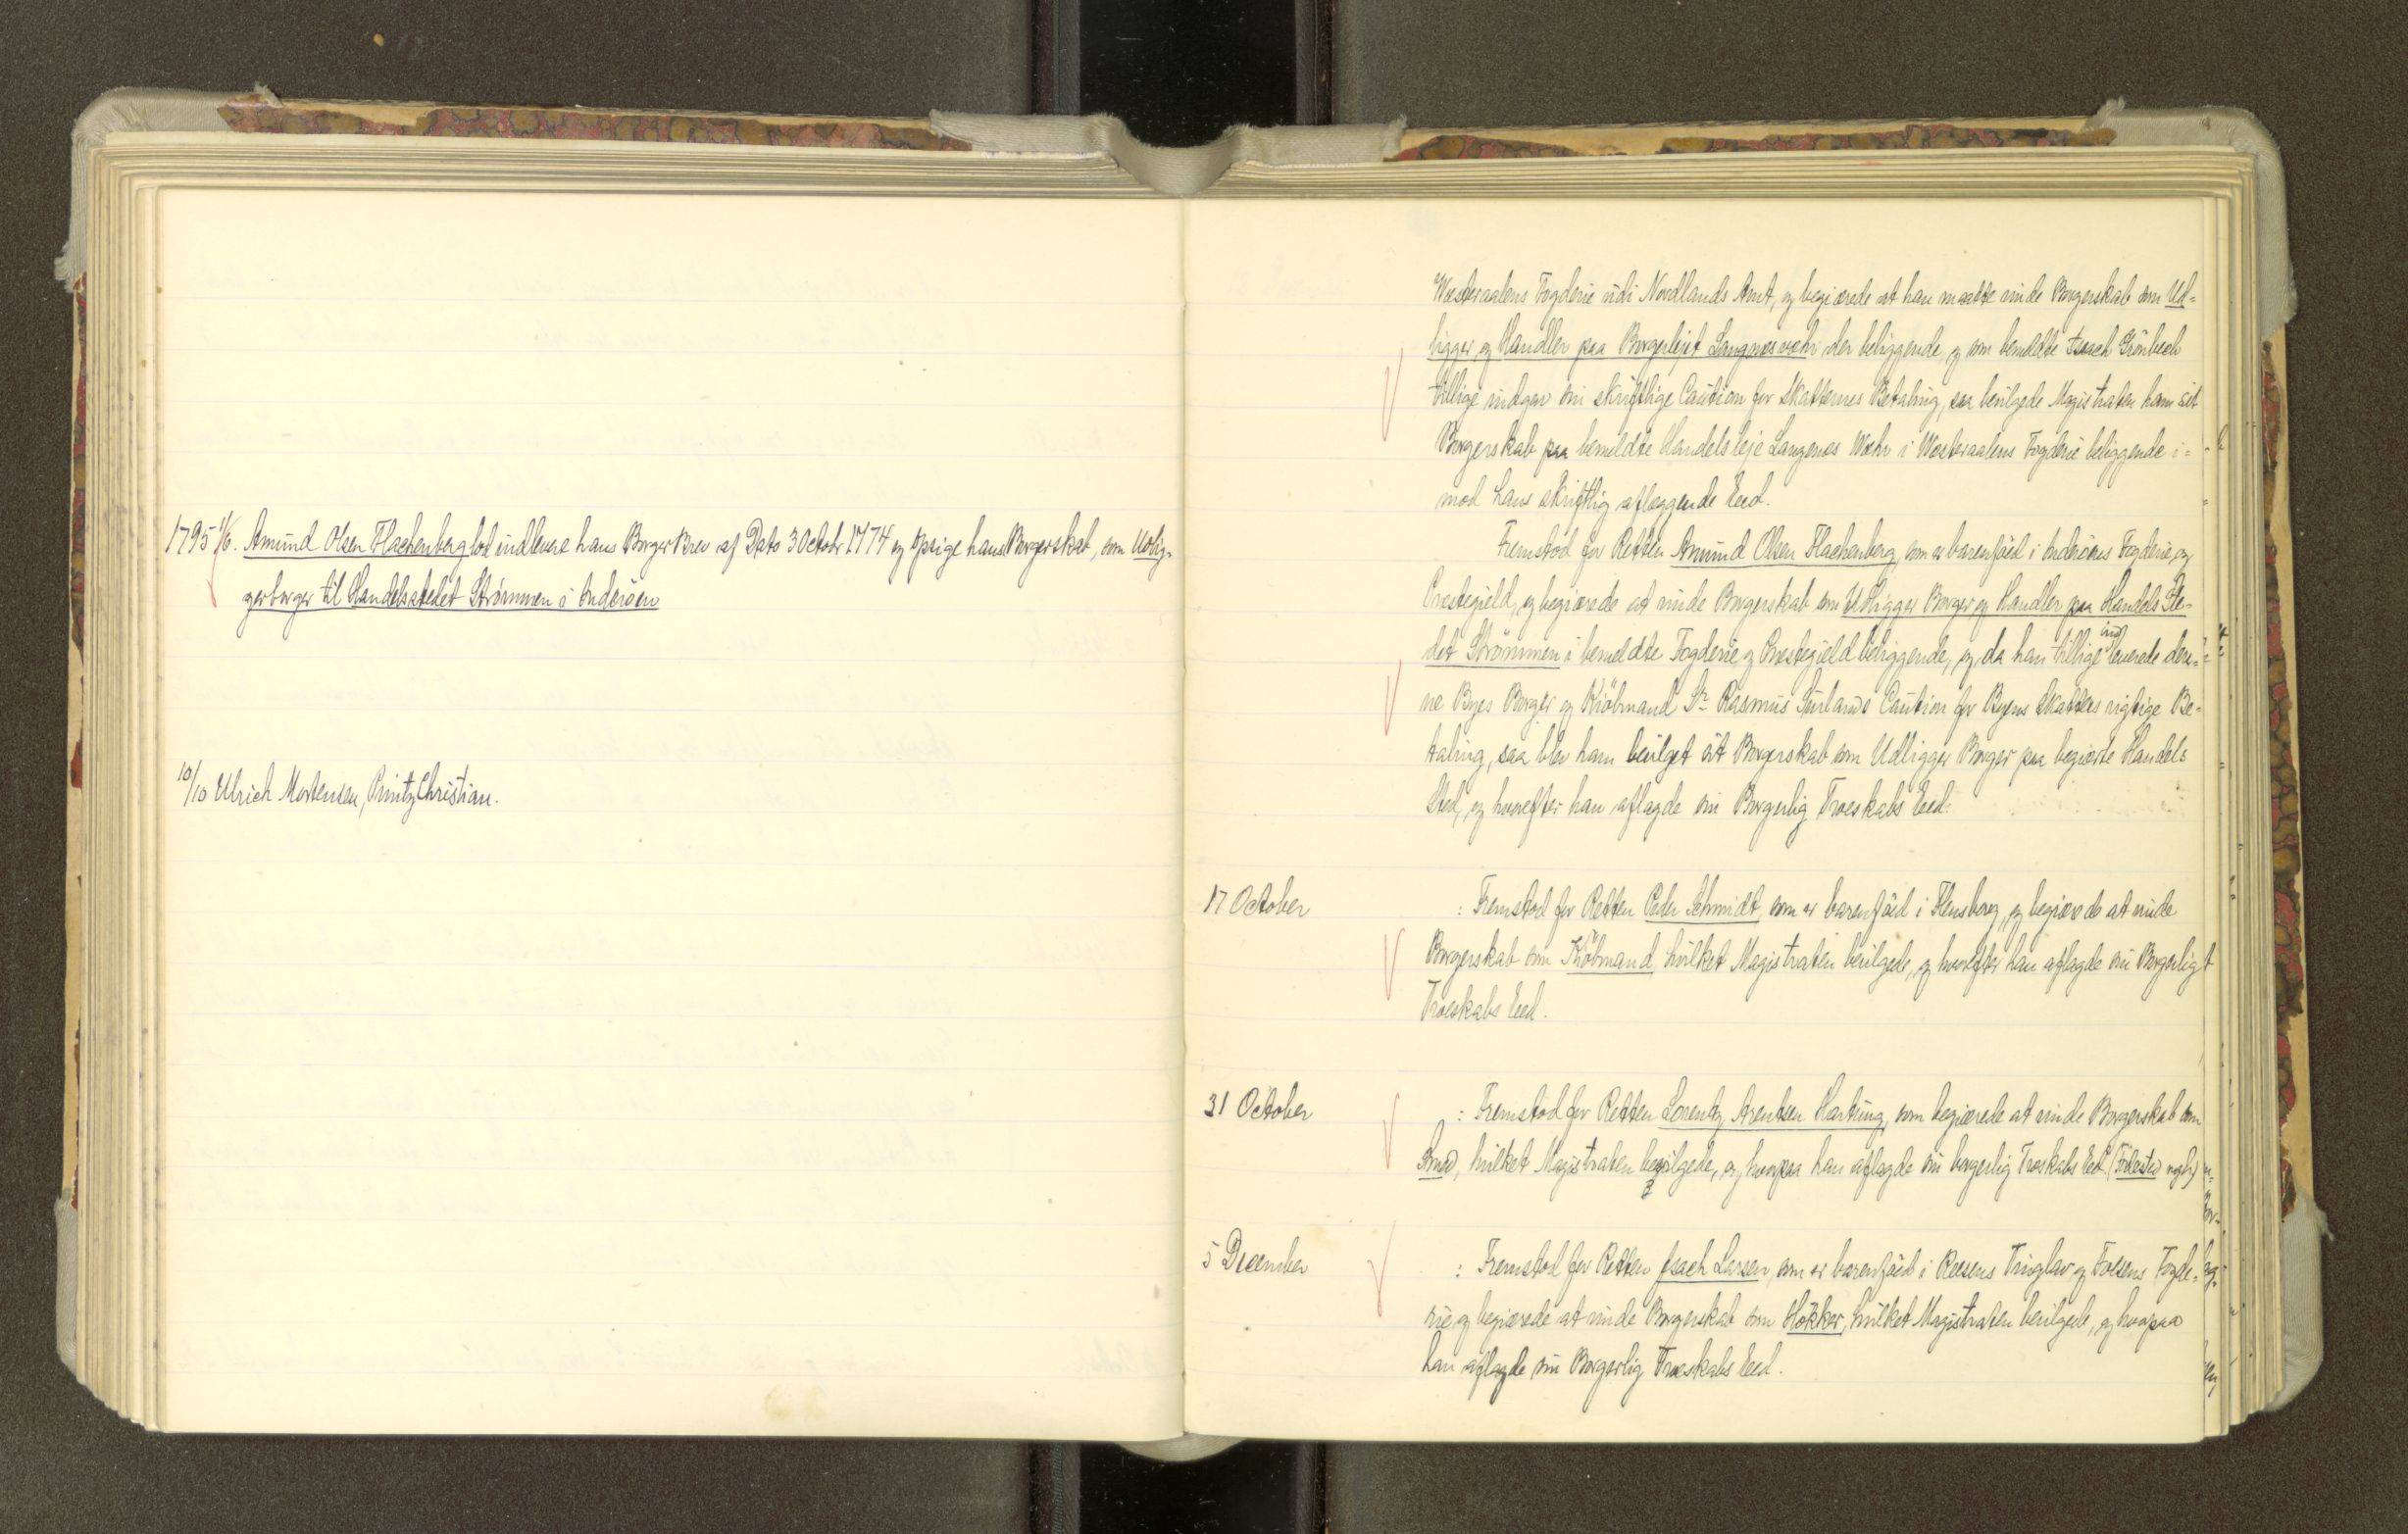 1795 1/6. Amund Olsen Flachenberg lod indlevere hans Borger Brev af Dato 3 Octobr 1774 og opsige hans Borgerskab, som Udlig-
gerborger til Handelsstedet Strömmen i Inderöen
10/10 Ulrich Mortensen, Printz Christian.
Westeraalens Fogderie udi Nordlands Amt, og begiærede at han maatte vinde Borgerskab som Ud-
ligger og Handler paa Borgerlejet Langnæsvæhr der beliggende, og som bemeldte Isach Grönbech
tillige indgav sin skriftlige Caution for Skatternes Betaling, saa bevilgede Magistraten ham sit
Borgerskab paa bemeldte Handels leje Langenes Wæhr i Westeraalens Fogderie beliggende i-
mod hans skriftlig aflæggende Eed.
Fremstod for Retten Amund Olsen Flachenberg, som er barenföed i Inderöens Fogderie og
Præstegield, og begiærede at vinde Borgerskab som Udligger Borger og Handler paa Handels Ste-
det Strömmen i bemeldte Fogderie og Præstegield beliggende, og da han tillige ind leverede den-
ne Byes Borger og Kiöbmand Sr Rasmus 's Caution for Byens Skatters rigtige Be-
taling, saa blev ham bevilget sit Borgerskab som Udligger Borger paa begiærte Handels
Sted, og hvorefter han aflagde sin Borgerlig Troeskabs Eed.
17 October : Fremstod for Retten Peder Schmidt, som er barenföed i Flensborg, og begiærede at vinde
Borgerskab som Kiöbmand, hvilket Magistraten bevilgede, og hvorefter han aflagde sin Borgerligt
Troeskabs Eed.
31 October : Fremstod for Retten Lorentz Arentsen Hartung, som begiærede at vinde Borgerskab som
Smed, hvilket Magistraten bevilgede, og hvorpaa han aflagde sin borgerlig Troskabs Eed.
5 December : Fremstod for Retten Isach Larsen, som er barenföed i Reesens Tinglav og Fosens Fogde-
rie og begiærede at vinde Borgerskab som Hökker, hvilket Magistraten bevilgede, og hvorpaa
han aflagde sin Borgerlig Troeskabs Eed.